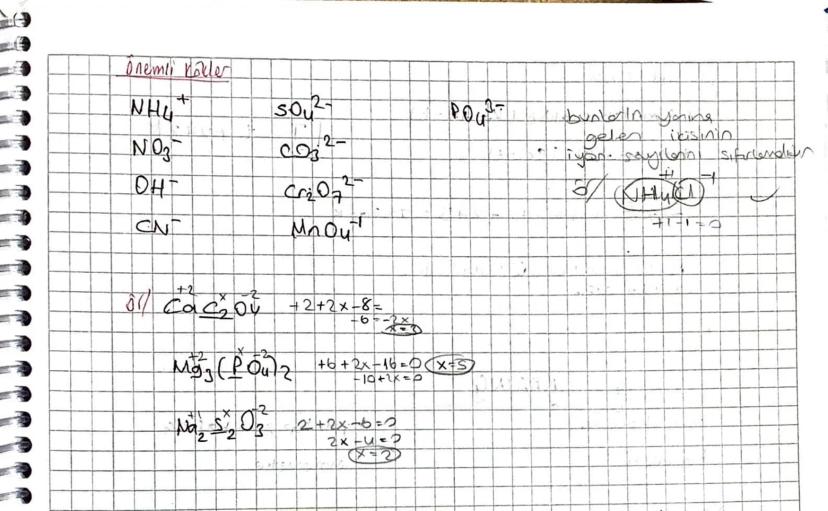 önemli kökler
NH4+ SO4²⁻ PO4³⁻
NO3⁻ CO3²⁻
OH⁻ Cr2O7²⁻
CN⁻ MnO4⁻¹
bunların yanına
gelen ikisinin
iyon sayılarını sıfırlamalıdır
ö/ NH4Cl +1 -1
+1-1=0
ör// CaC2O4 +2 x -2 +2+2x-8=
-6=-2x
x=3
Mg3(PO4)2 +2 x -2 +6+2x-16=0 x=5
-10+2x=0
Na2S2O3 +1 x -2 2+2x-6=0
2x-4=0
x=2